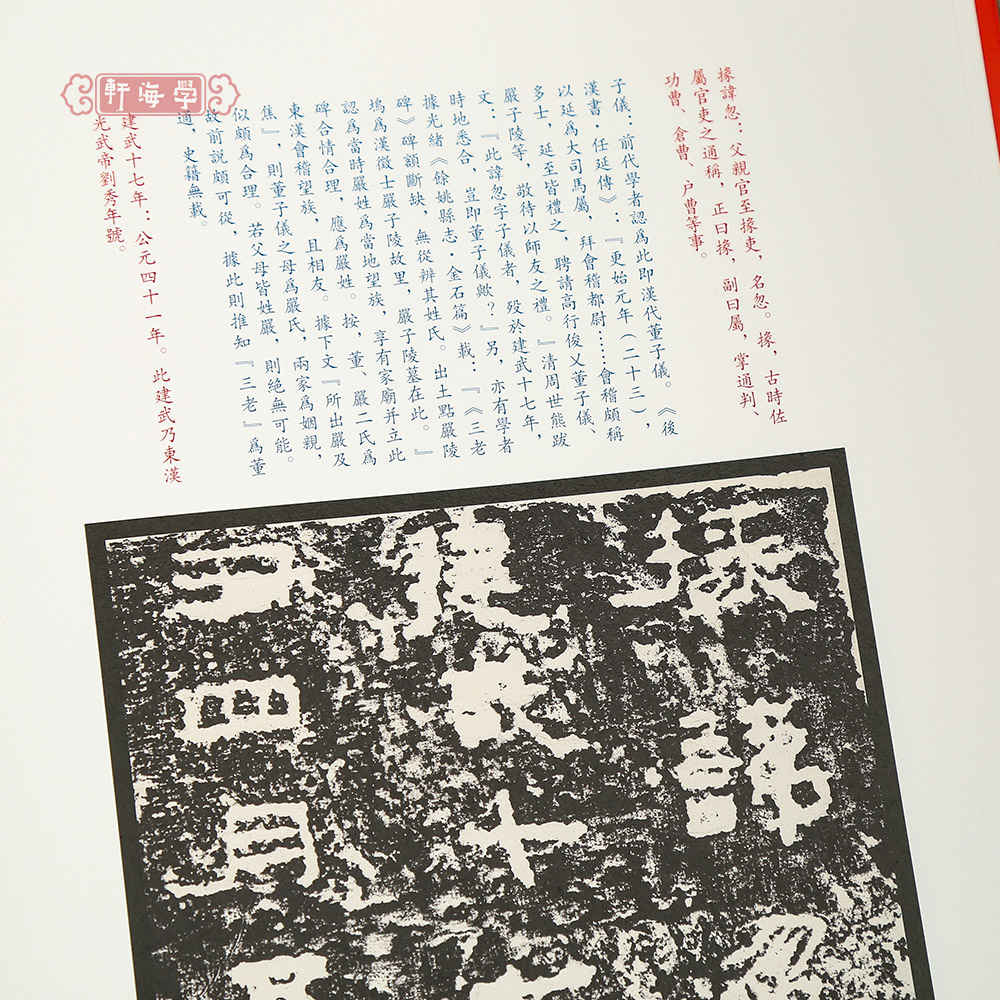 學海軒
掾諱忽：父親官至掾吏，名忽。掾，古時佐
屬官吏之通稱，正曰掾，副曰屬，掌通判、
功曹、倉曹、户曹等事。
子儀：前代學者認爲此即漢代董子儀。《後
漢書·任延傳》：『更始元年（二十三），
以延爲大司馬屬，拜會稽都尉……會稽頗稱
多士，延至皆禮之，聘請高行俊乂董子儀、
嚴子陵等，敬待以師友之禮。』清周世熊跋
文：『此諱忽字子儀者，殁於建武十七年，
時地悉合，豈即董子儀歟？』另，亦有學者
據光緒《餘姚縣志·金石篇》載：『《三老
碑》碑額斷缺，無從辨其姓氏。出土點嚴陵
塢爲漢徵士嚴子陵故里，嚴子陵墓在此。』
認爲當時嚴姓爲當地望族，享有家廟并立此
碑合情合理，應爲嚴姓。按，董、嚴二氏爲
東漢會稽望族，且相友。據下文『所出嚴及
焦』，則董子儀之母爲嚴氏，兩家爲姻親，
似頗爲合理。若父母皆姓嚴，則絕無可能。
故前説頗可從，據此則推知『三老』爲董
通，史籍無載。
建武十七年：公元四十一年。此建武乃東漢
光武帝劉秀年號。
掾諱忽
建武十
丑四月